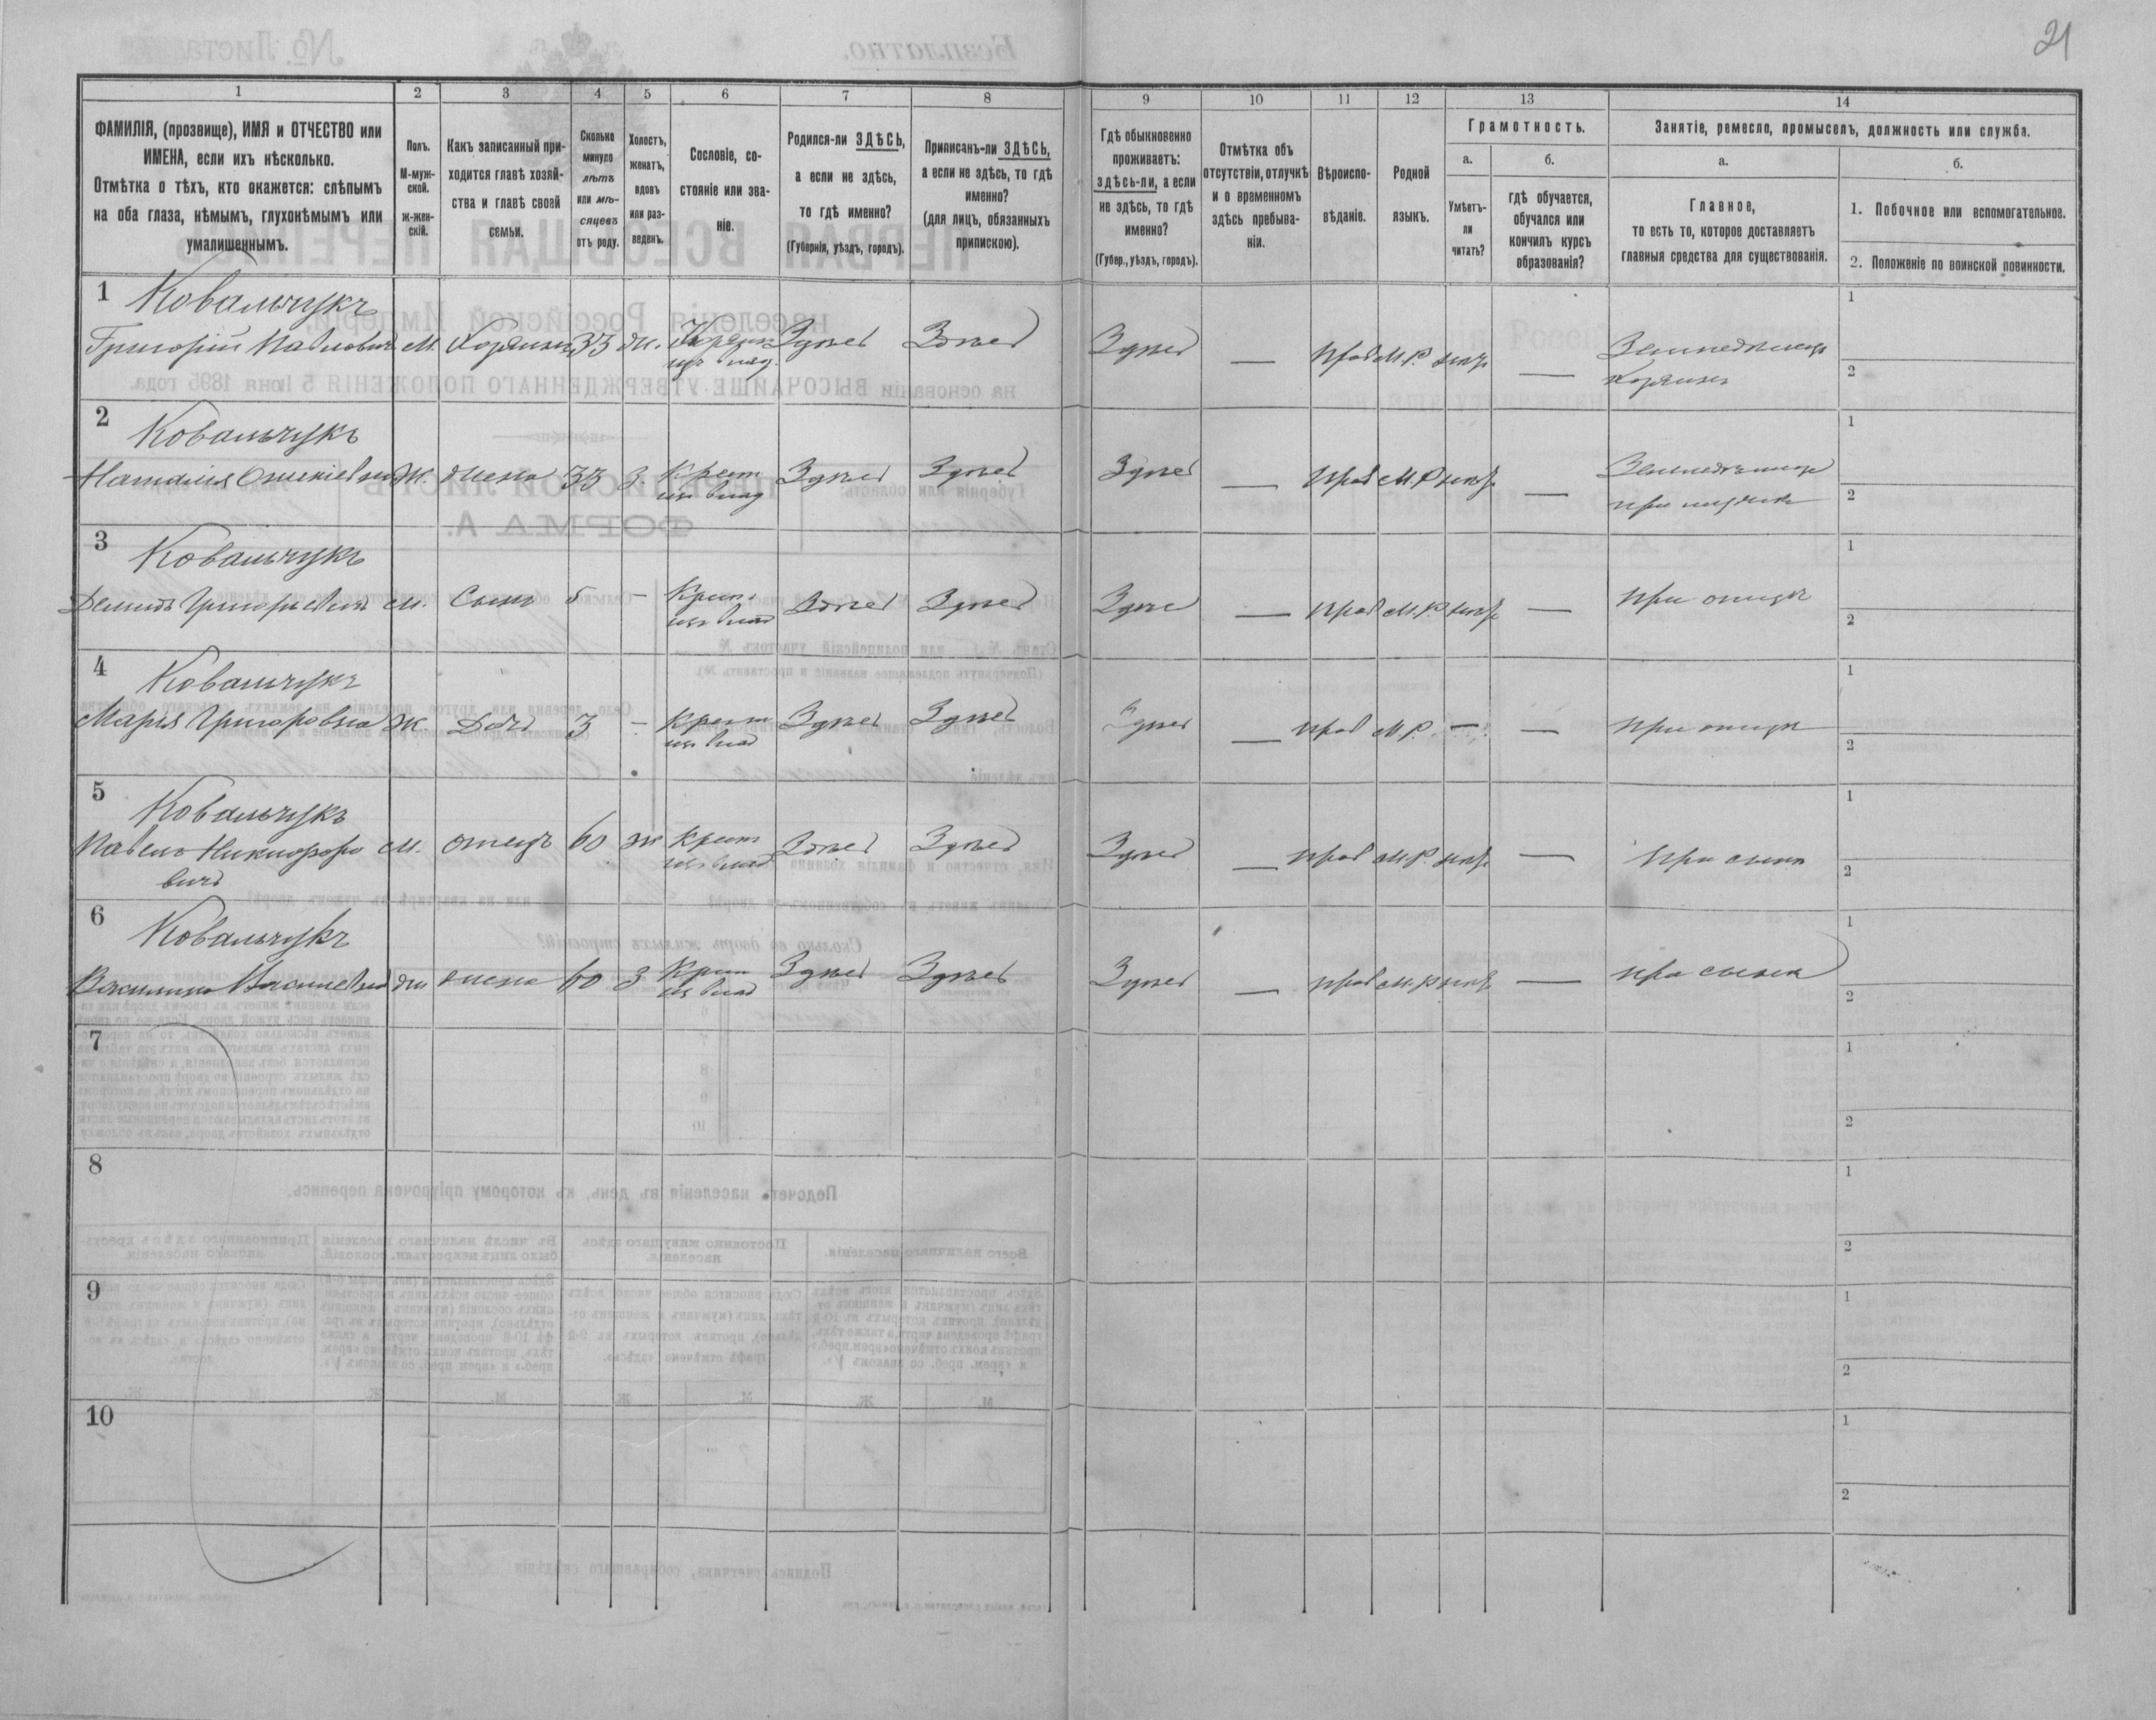 21
1 2 3 4 5 6 7 8 9 10 11 12 13 14
ФАМИЛІЯ, (прозвище), ИМЯ и ОТЧЕСТВО или
ИМЕНА, если ихъ нѣсколько.
Отмѣтка о тѣхъ, кто окажется: слѣпымъ
на оба глаза, нѣмымъ, глухонѣмымъ или
умалишеннымъ.
Полъ.
М-муж-
ской.
Ж-жен-
скій.
Какъ записанный при-
ходится главѣ хозяй-
ства и главѣ своей
семьи.
Сколько
минуло
лѣтъ
или мѣ-
сяцевъ
отъ роду.
Холостъ,
женатъ,
вдовъ
или раз-
веденъ.
Сословіе, со-
стояніе или зва-
ніе.
Родился-ли ЗДѢСЬ,
а если не здѣсь,
то гдѣ именно?
(Губернія, уѣздъ, городъ).
Приписанъ-ли ЗДѢСЬ,
а если не здѣсь, то гдѣ
именно?
(для лицъ, обязанныхъ
припискою).
Гдѣ обыкновенно
проживаетъ:
здѣсь-ли, а если
не здѣсь, то гдѣ
именно?
(Губер., уѣздъ, городъ).
Отмѣтка объ
отсутствіи, отлучкѣ
и о временномъ
здѣсь пребыва-
ніи.
Вѣроиспо-
вѣданіе.
Родной
языкъ.
Грамотность.
а.
Умѣетъ-
ли
читать?
б.
гдѣ обучается,
обучался или
кончилъ курсъ
образованія?
Занятіе, ремесло, промыселъ, должность или служба.
а.
Главное,
то есть то, которое доставляетъ
главныя средства для существованія.
б.
1. Побочное или вспомогательное.
2. Положеніе по воинской повинности.
1 Ковальчукъ 1
Григорій Павловичъ М. Хозяинъ 33 Здѣсь Здѣсь Здѣсь — Прав М.Р. — Земледѣлецъ
хозяинъ 2
2 Ковальчукъ 1
Наталія Ж. жена 33 З. Крест Здѣсь Здѣсь Здѣсь — Прав М.Р — 
из влад при 2
3 Ковальчукъ 1
Демидъ Григорьевичъ М. Сынъ 5 – Крест Здѣсь Здѣсь Здѣсь — Прав М.Р. — при отцѣ
из влад 2
4 Ковальчукъ 1
Марія Григоровна Ж. Дочь 3 – Крест Здѣсь Здѣсь Здѣсь — Прав М.Р. — — при отцѣ
из влад 2
5 Ковальчукъ 1
Павелъ Никифоро М. отецъ 60 ж Крест Здѣсь Здѣсь Здѣсь — Прав М.Р. — При сынѣ
вичъ из влад 2
6 Ковальчукъ 1
Ж жена 60 З Крест Здѣсь Здѣсь Здѣсь — прав М.Р — при сынѣ
из влад 2
7 1
2
8 1
2
9 1
2
10 1
2